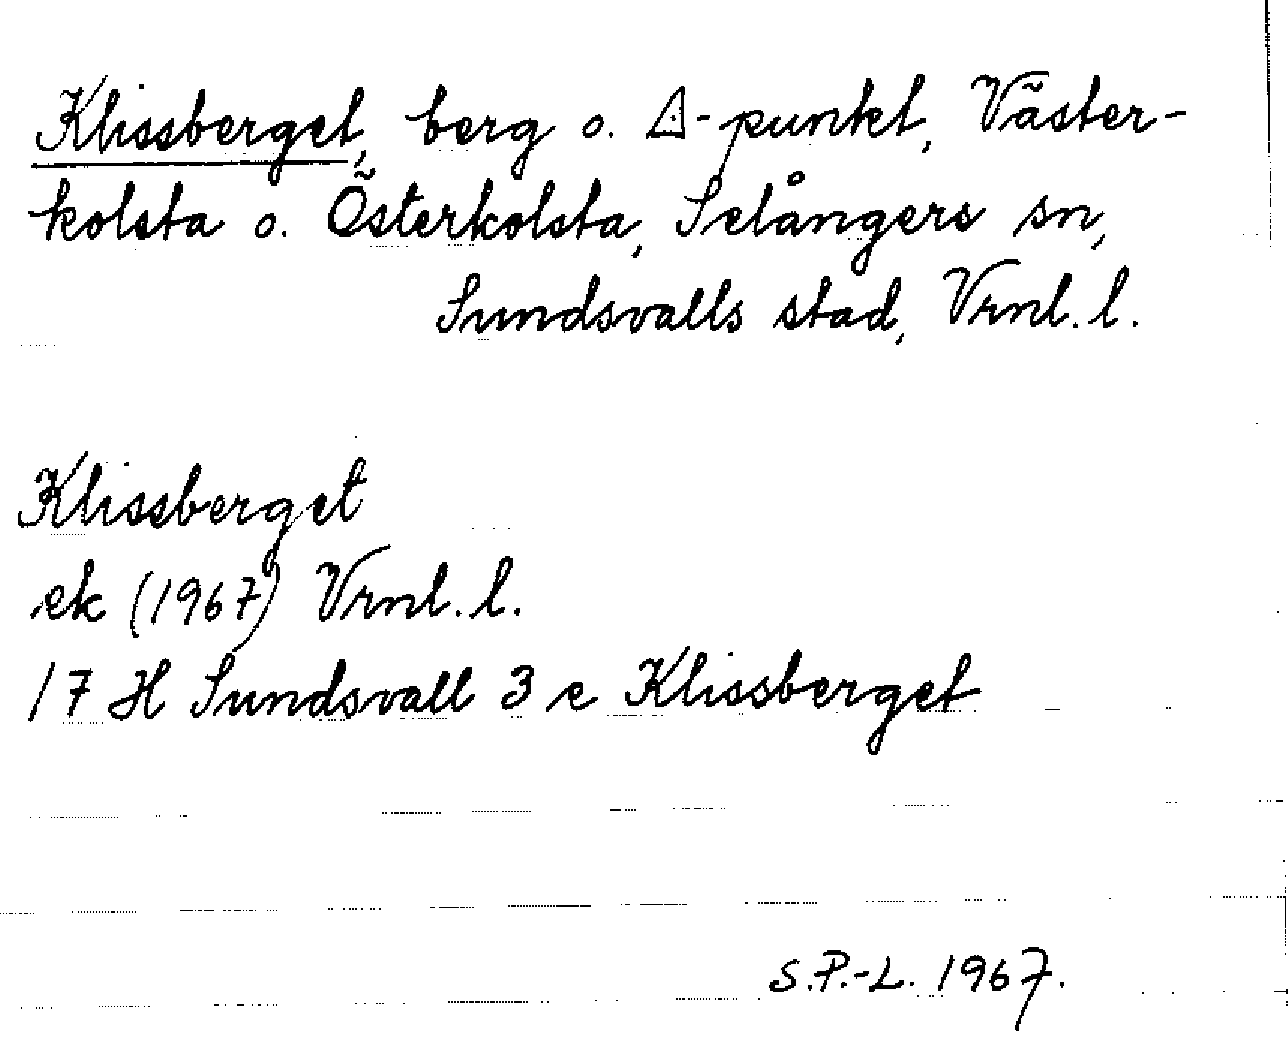 Klissberget, berg o. △-punkt, Väster-
kolsta o. Österkolsta, Selångers sn,
Sundsvalls stad, Vrnl. l.
Klissberget
ek (1967) Vrnl. l.
17 H Sundsvall 3 e Klissberget
S.P.-L. 1967.